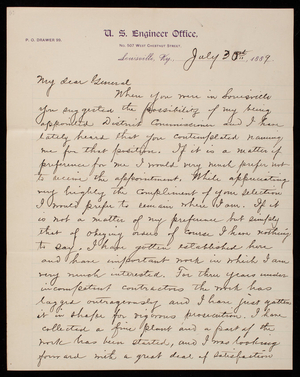 P. O. DRAWER 80.
U. S. Engineer Office,
WEST CHESTNUT STREET.
Louisville, Ky., July 30th, 1889.
My dear General
When you were in Louisville
you suggested the possibility of my being
appointed District Commissioner and I have
lately heard that you contemplated naming
me for that position. If it is a matter of
preference for me I would very much prefer not
to receive the appointment. While appreciating
very highly the compliment of your selection
I would prefer to remain where I am. If it
is not a matter of my preference but simply
that of obeying orders of course I have nothing
to say. I have gotten established here
and have important work in which I am
very much interested. For three years under
incompetent contractors the work has
lagged outrageously and I have just gotten
it in shape for vigorous prosecution. I have
collected a fine plant and a part of the
work has been started, and I was looking
forward with a great deal of satisfaction